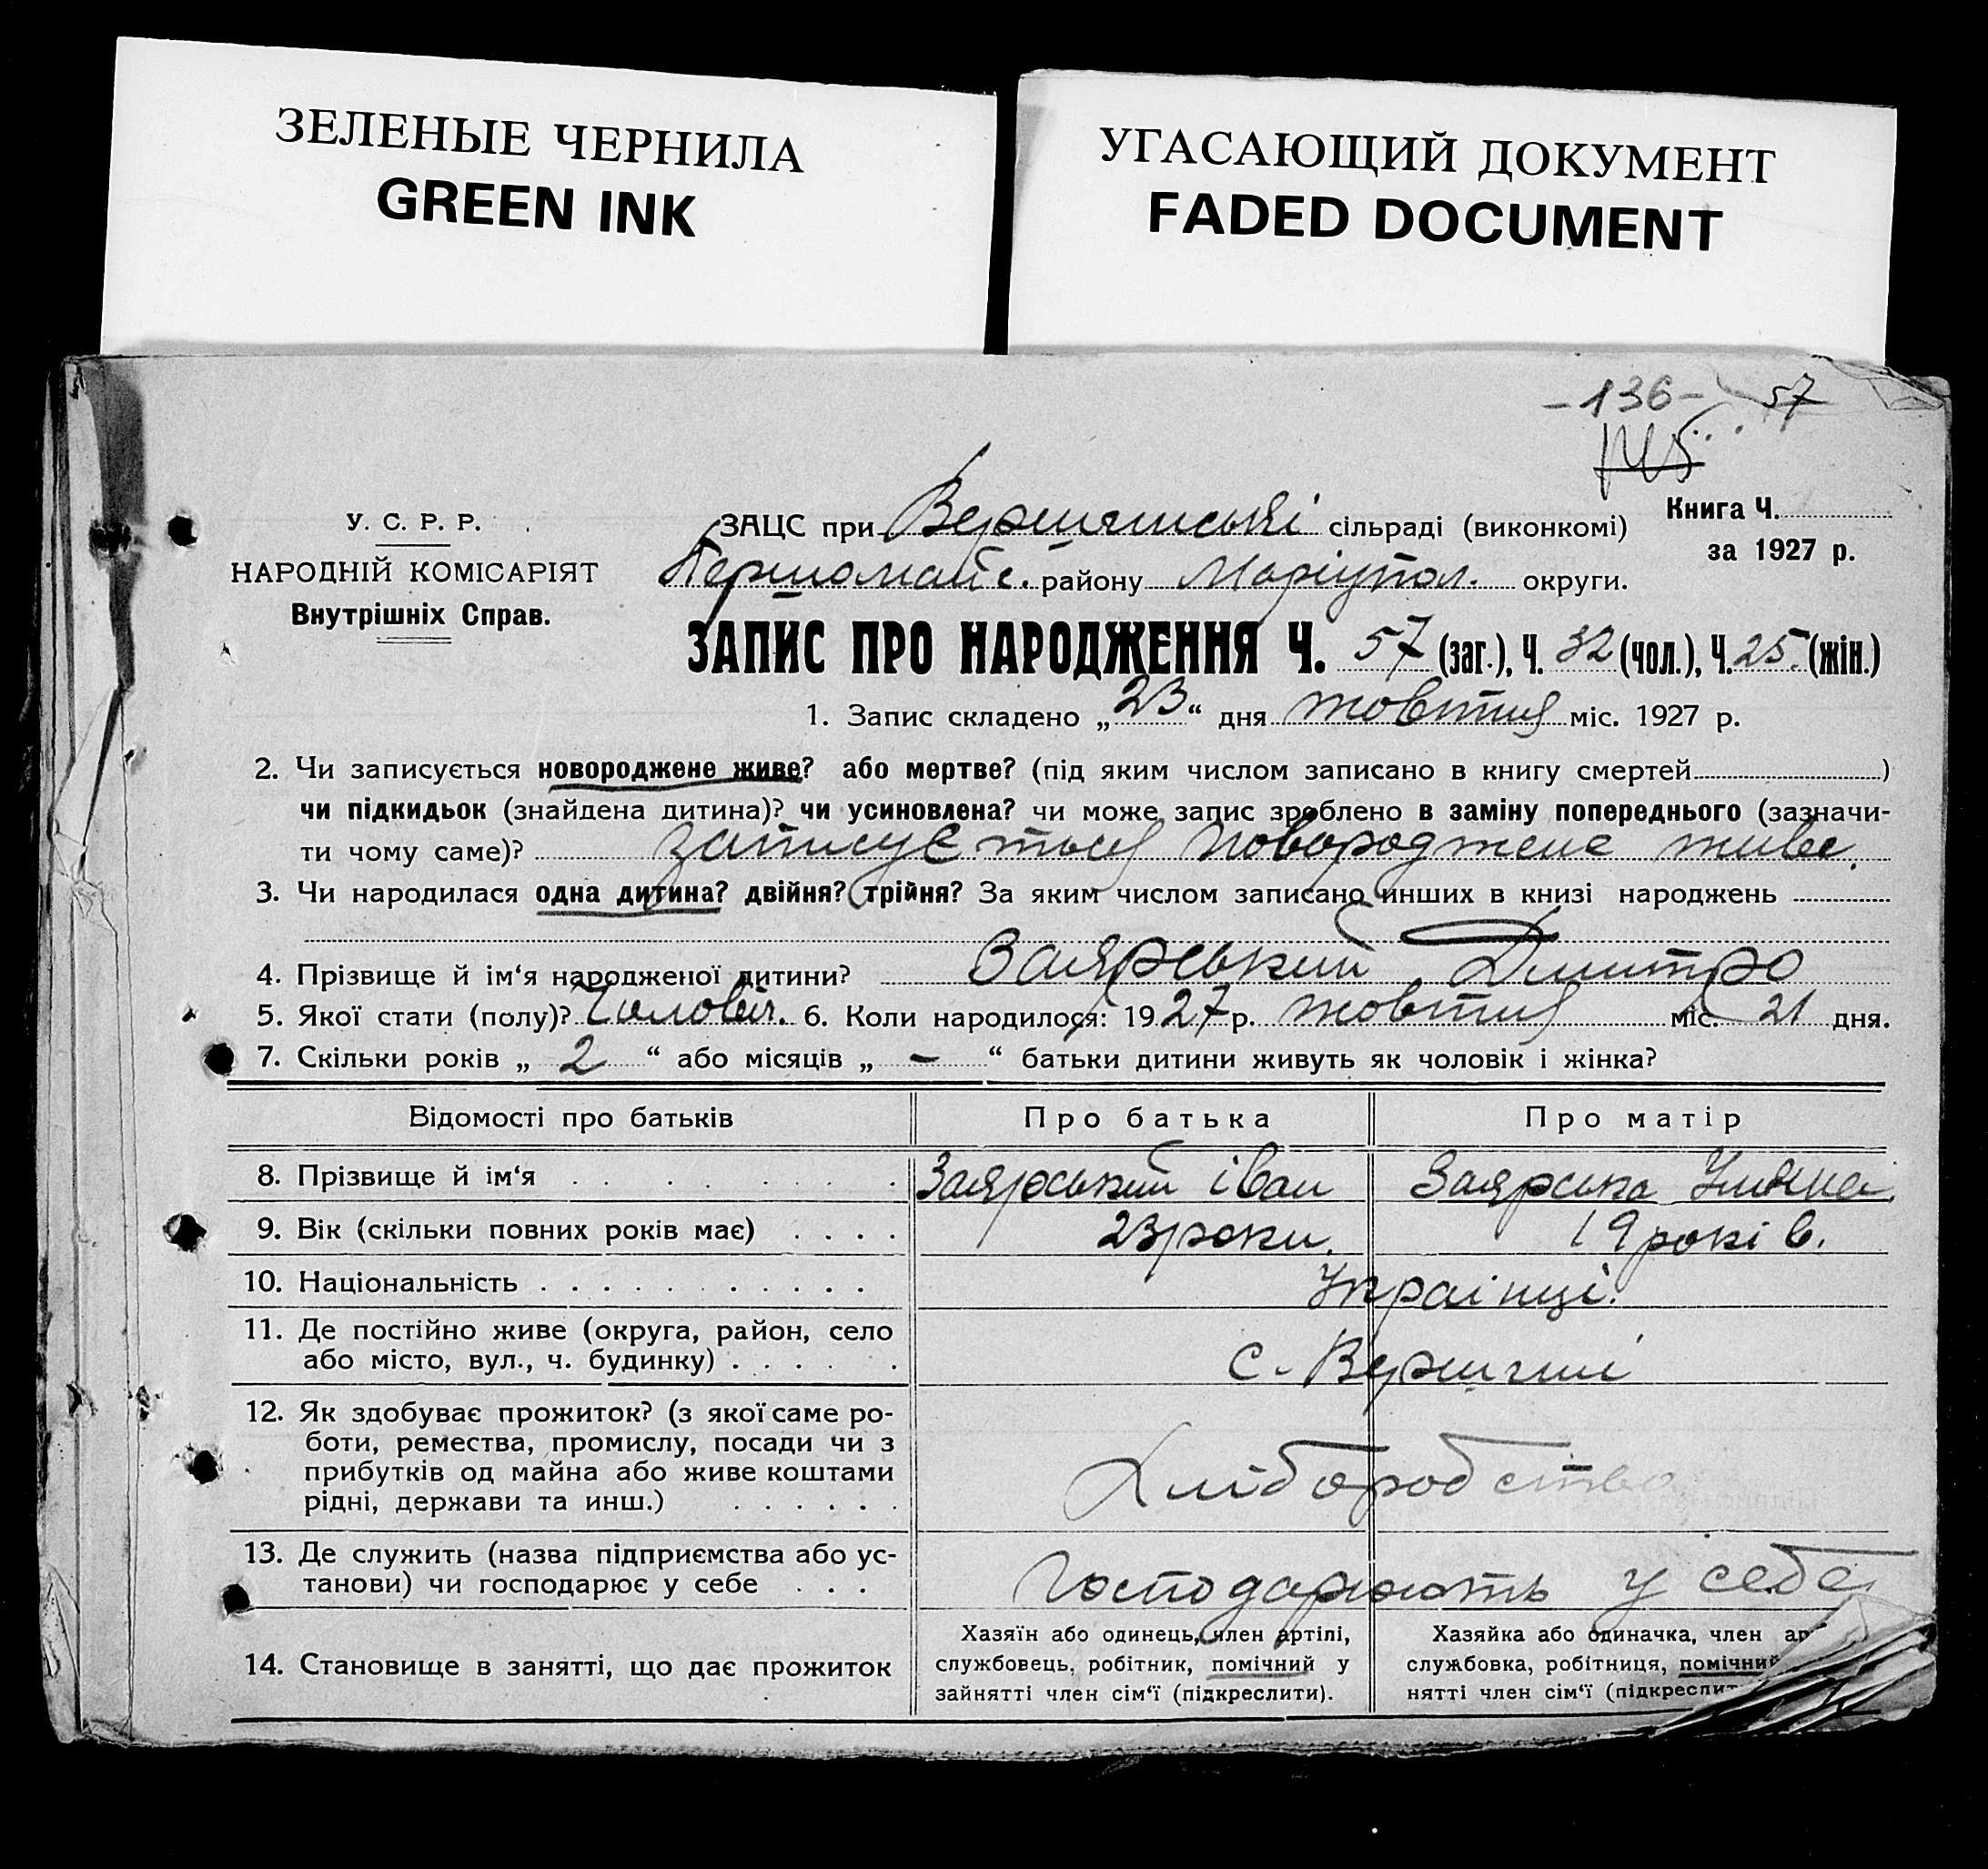 ЗЕЛЕНЫЕ ЧЕРНИЛА
GREEN INK
УГАСАЮЩИЙ ДОКУМЕНТ
FADED DOCUMENT
-136- 57
145
У. С. Р. Р.
НАРОДНІЙ КОМІСАРІЯТ
Внутрішніх Справ.
Книга Ч.
за 1927 р.
ЗАЦС при сільраді (виконкомі)
Першомайс. району Маріупол. округи.
ЗАПИС ПРО НАРОДЖЕННЯ Ч. 57 (заг.), Ч. 32 (чол.), Ч. 25. (жін.)
1. Запис складено „23“ дня жовтня міс. 1927 р.
2. Чи записується новороджене живе? або мертве? (під яким числом записано в книгу смертей)
чи підкидьок (знайдена дитина)? чи усиновлена? чи може запис зроблено в заміну попереднього (зазначи-
ти чому саме)? записується новороджене живе.
3. Чи народилася одна дитина? двійня? трійня? За яким числом записано инших в книзі народжень
4. Прізвище й ім‘я народженої дитини? Заярський Дмитро
5. Якої стати (полу)? Чоловіч. 6. Коли народилося: 1927 р. жовтня міс. 21 дня.
7. Скільки років „ 2 “ або місяців „ – “ батьки дитини живуть як чоловік і жінка?
Відомості про батьків Про батька Про матір
8. Прізвище й ім‘я Заярський Іван Заярська Уляна
9. Вік (скільки повних років має) 23 роки. 19 років.
10. Національність Українці.
11. Де постійно живе (округа, район, село
або місто, вул., ч. будинку) с.
12. Як здобуває прожиток? (з якої саме ро-
боти, ремества, промислу, посади чи з
прибутків од майна або живе коштами
рідні, держави та инш.) Хліборобство
13. Де служить (назва підприємства або ус-
танови) чи господарює у себе Господарюють у себе
14. Становище в занятті, що дає прожиток
Хазяїн або одинець, член артілі,
службовець, робітник, помічний у
зайнятті член сім‘ї (підкреслити).
Хазяйка або одиначка, член
службовка, робітниця, помічний
нятті член сім‘ї